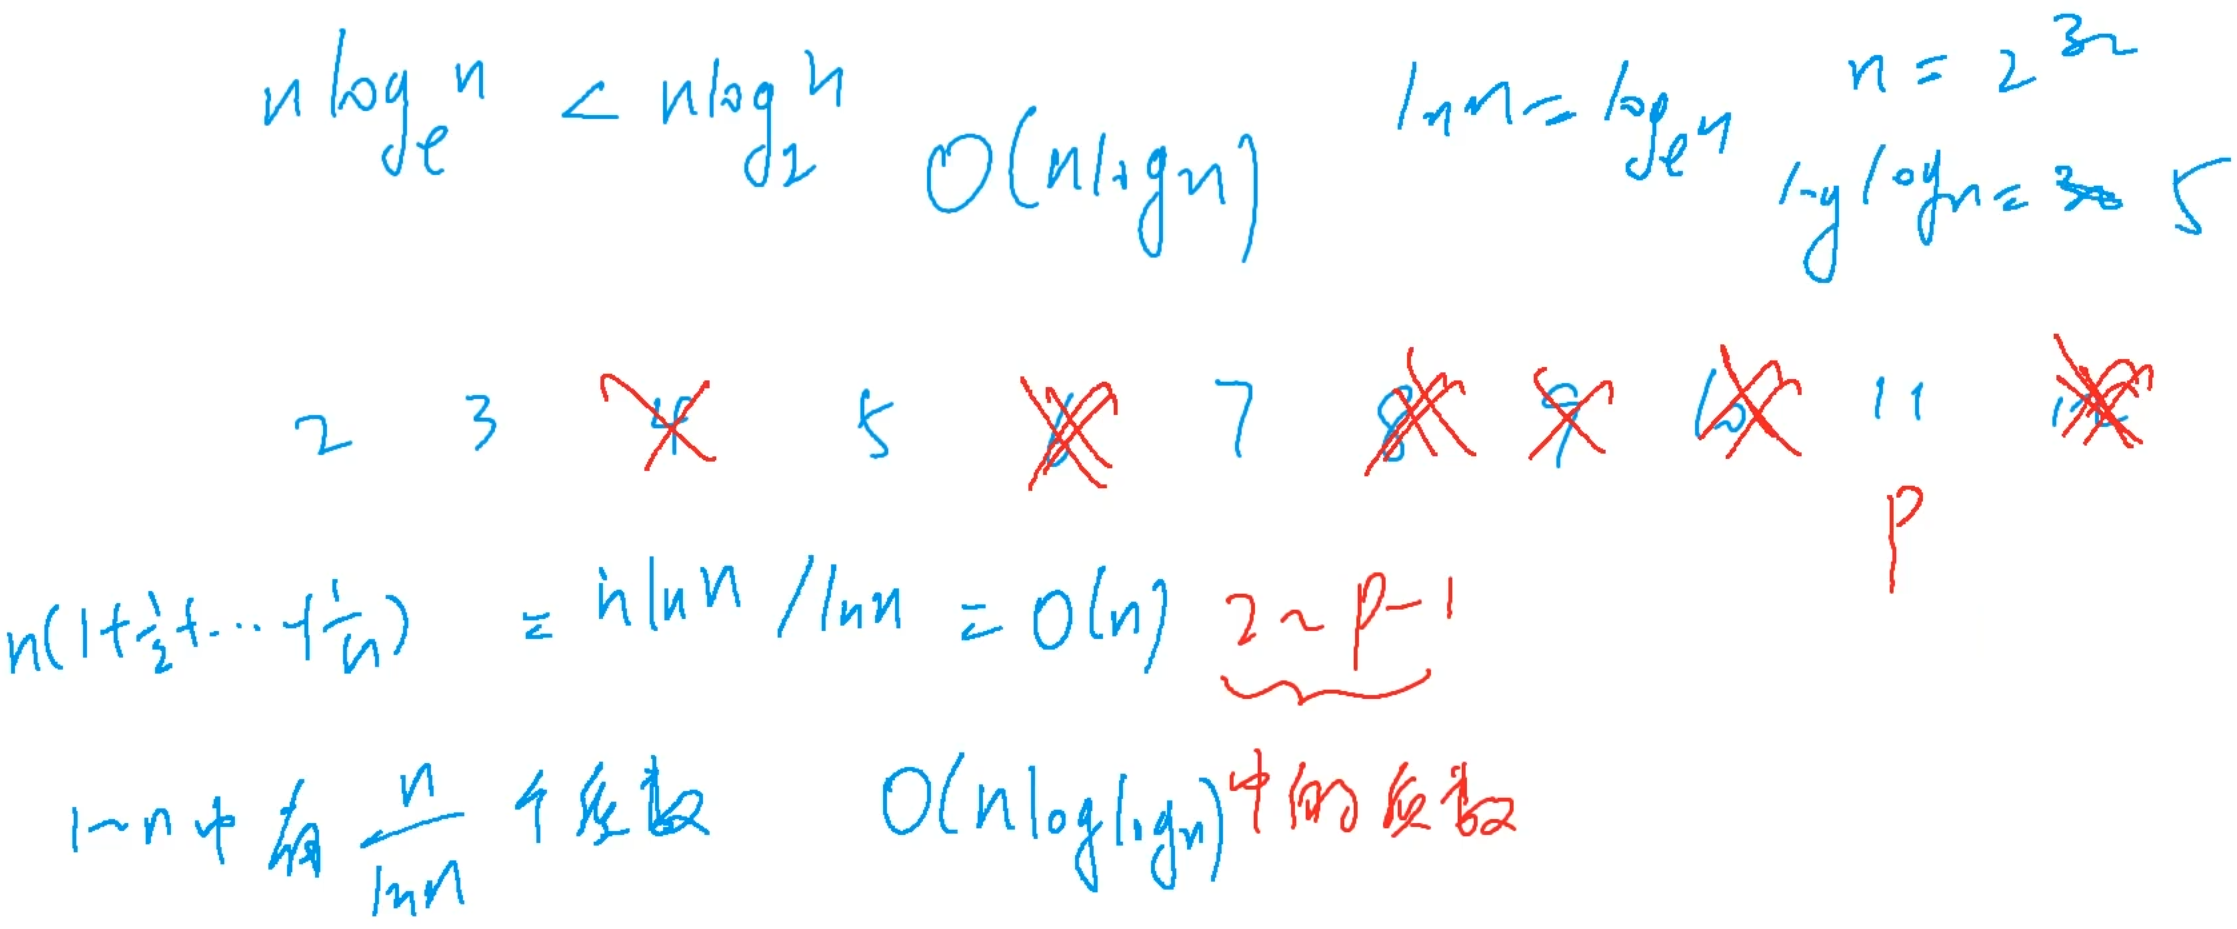 n log_e n < n log_2 n O(nlogn) ln n = log_e n n = 2^32
log log n = 5
2 3 4 5 6 7 8 9 10 11 12
P
n(1+1/2+...+1/n) = n ln n / ln n = O(n) 2~P-1
1~n中有 n/ln n 个质数 O(n log log n) 中的质数